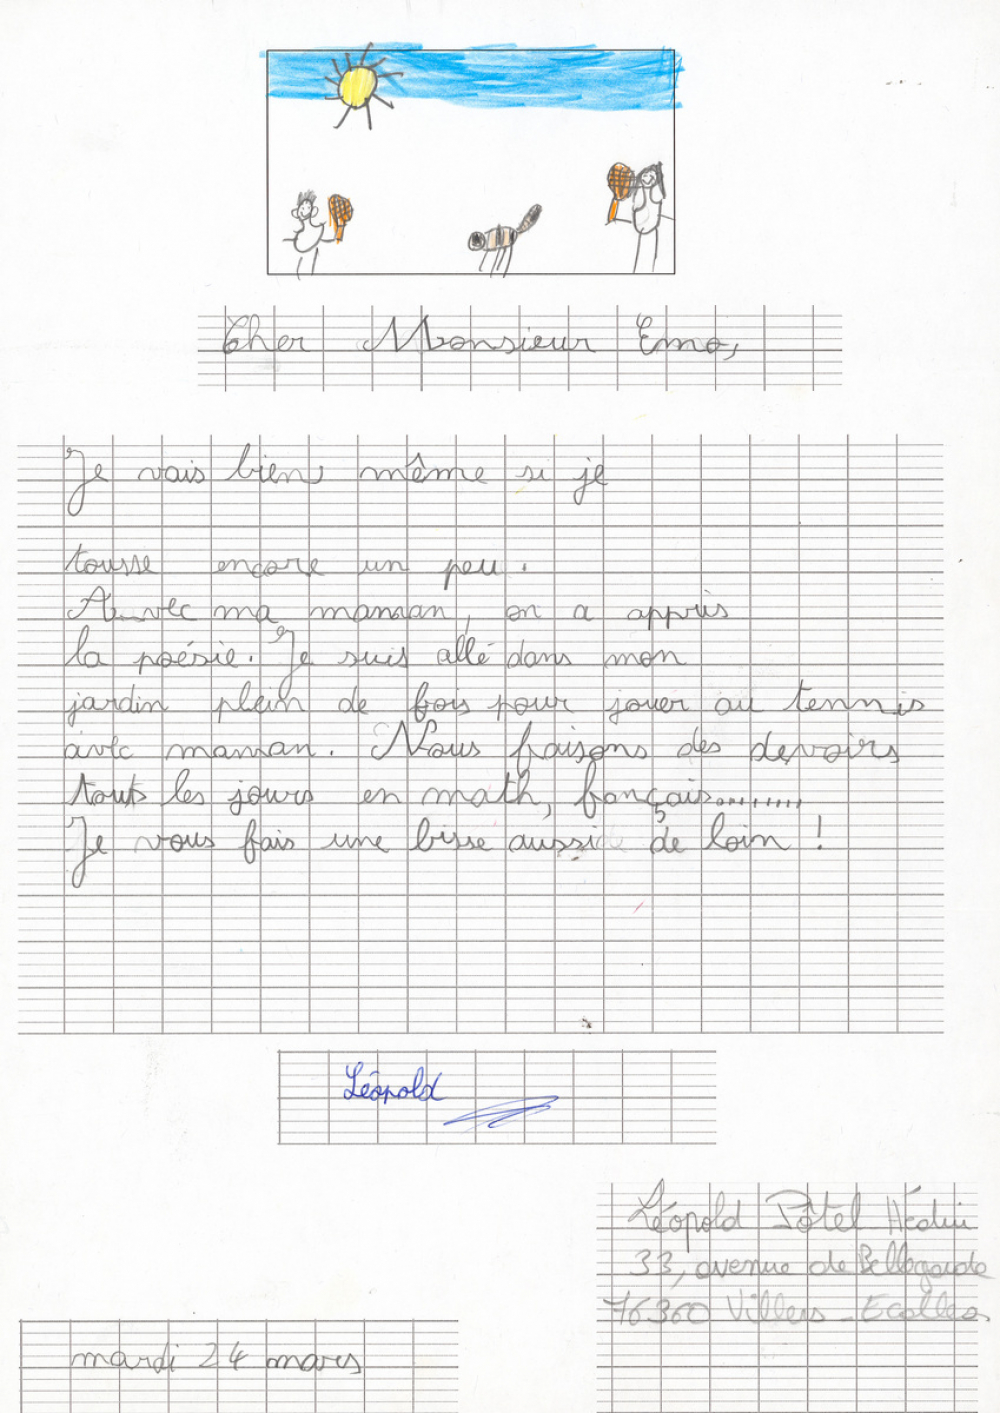 Cher Monsieur Emo,
Je vais bien, même si je
tousse encore un peu.
Avec ma maman, on a appris
la poésie. Je suis allé dans mon
jardin plein de fois pour jouer au tennis
avec maman. Nous faisons des devoirs
touts les jours en math, français.........
Je vous fais une bisse aussi de loin !
Léopold
Léopold Pôtel
33, avenue de Bellegarde
76360 Villers - Ecalles
mardi 24 mars